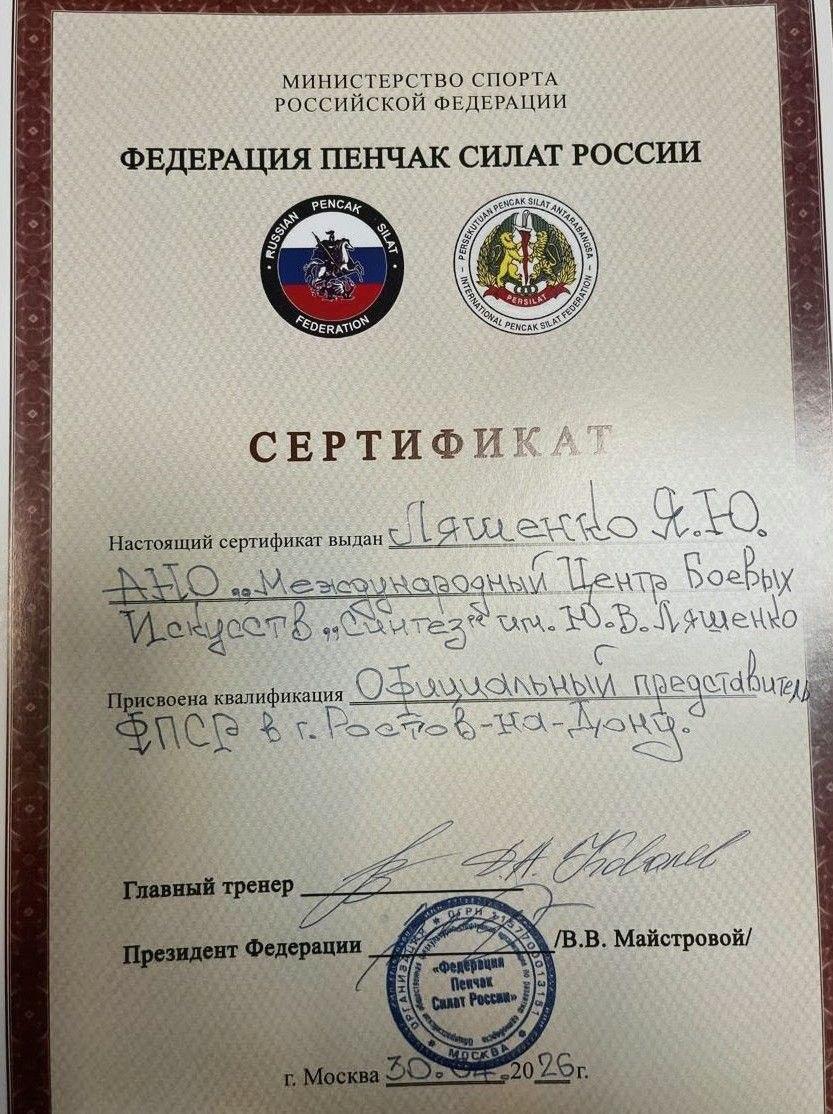 МИНИСТЕРСТВО СПОРТА
РОССИЙСКОЙ ФЕДЕРАЦИИ
ФЕДЕРАЦИЯ ПЕНЧАК СИЛАТ РОССИИ
RUSSIAN PENCAK SILAT
FEDERATION
PERSEKUTUAN PENCAK SILAT ANTARABANGSA
PERSILAT
INTERNATIONAL PENCAK SILAT FEDERATION
СЕРТИФИКАТ
Настоящий сертификат выдан Ляшенко Я.Ю.
АНО „Международный Центр Боевых
Искусств „Синтез“ им. Ю.В. Ляшенко
Присвоена квалификация Официальный представитель
ФПСР в г. Ростов-на-Дону.
Главный тренер Д.А. Ковалев
Президент Федерации /В.В. Майстровой/
ОРГАНИЗАЦИЯ * ОГРН
«Федерация
Пенчак
Силат России»
* МОСКВА *
г. Москва 30.04.2026г.